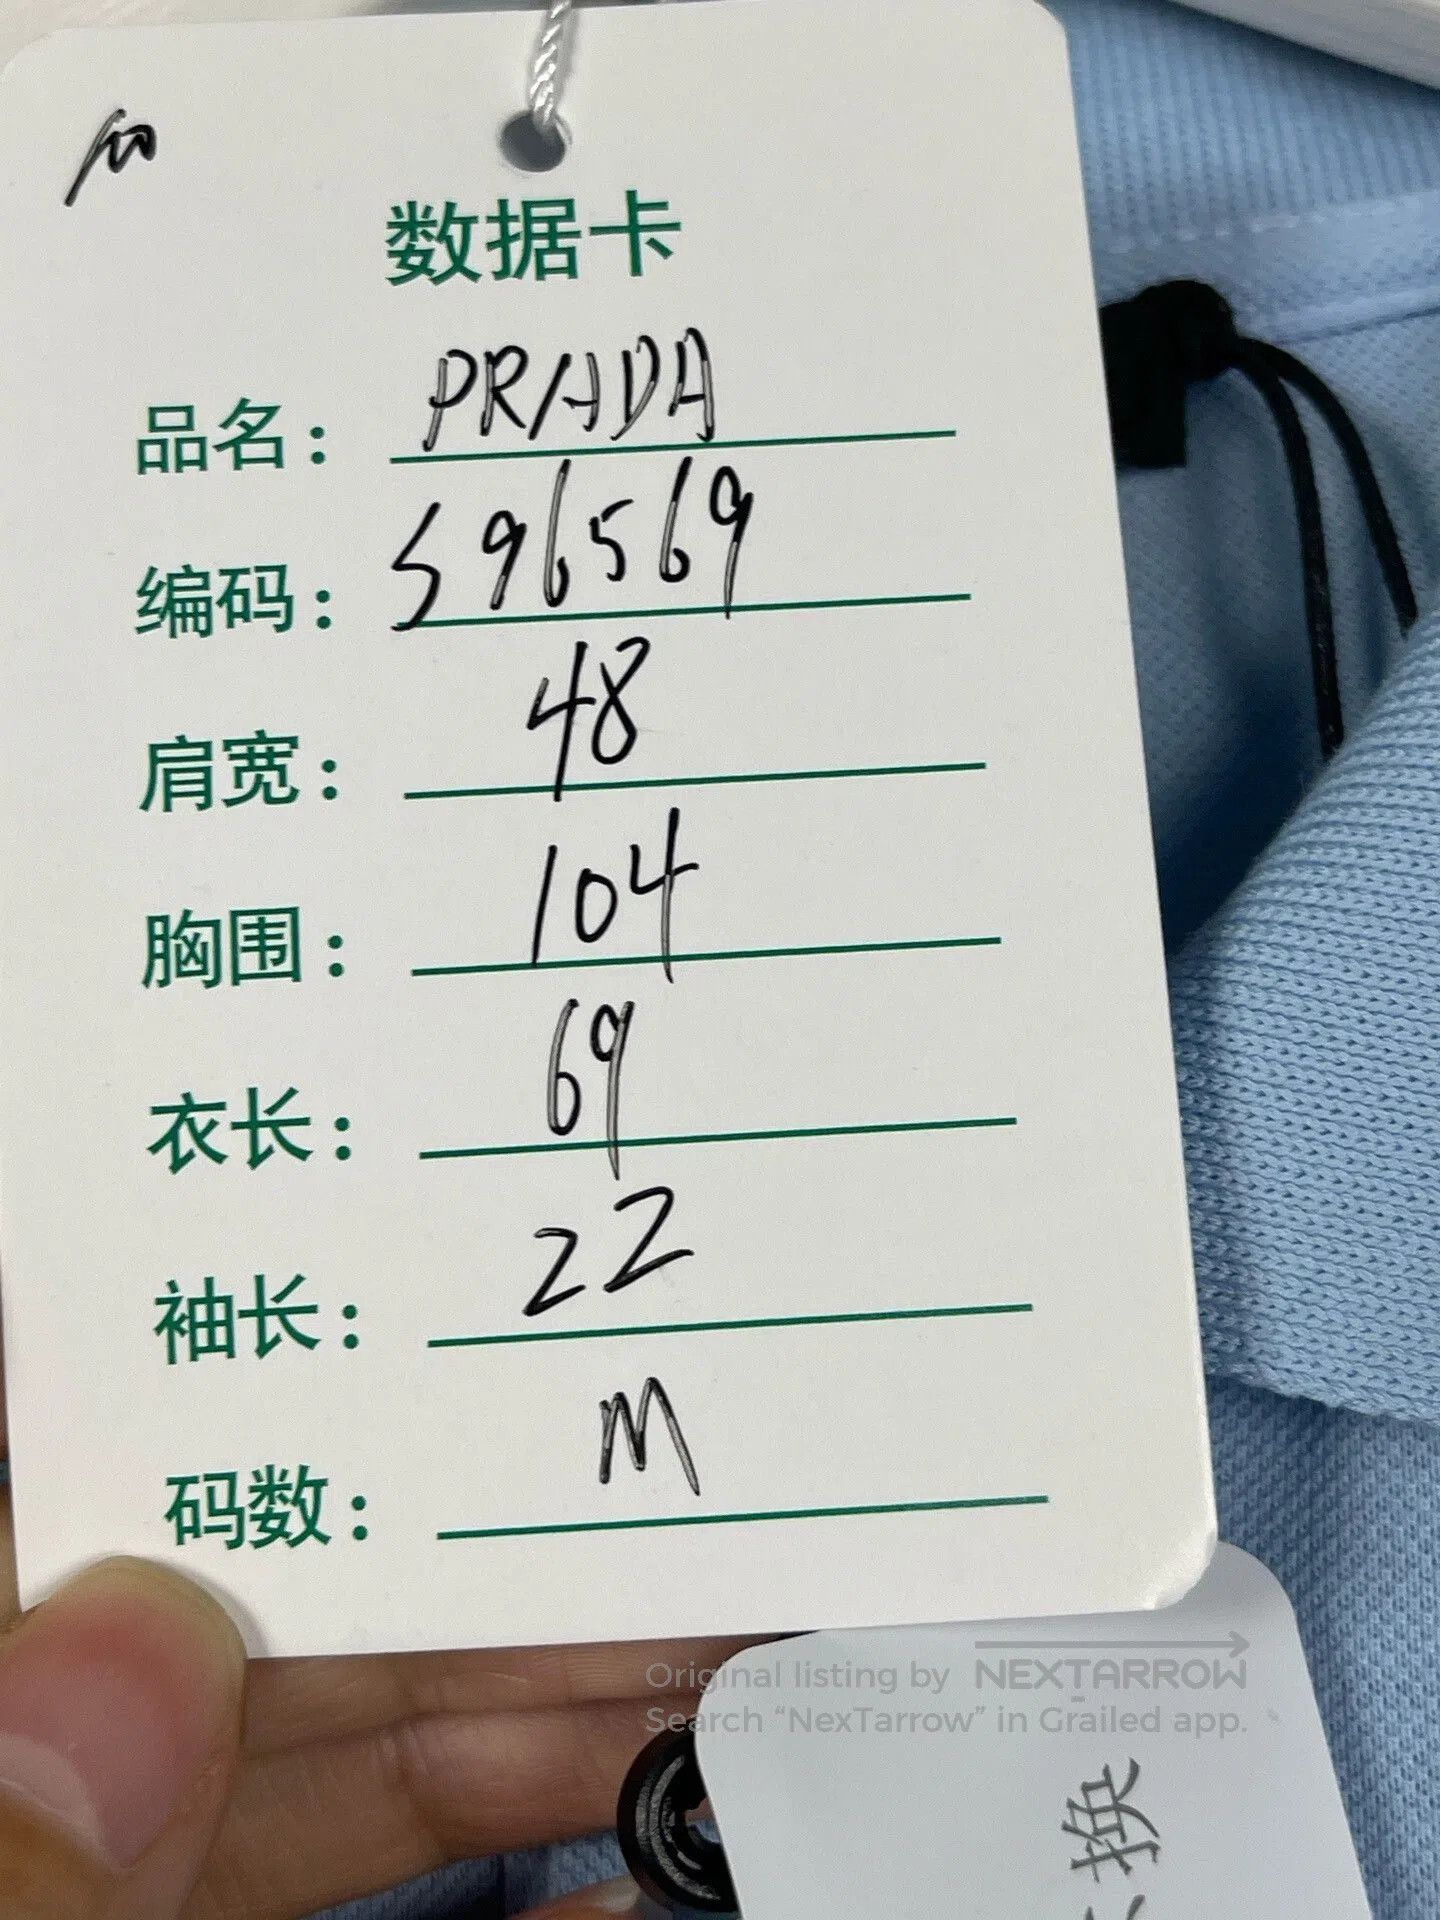 数据卡
品名: PRADA
编码: S96569
肩宽: 48
胸围: 104
衣长: 69
袖长: 22
码数: M
Original listing by NEXTARROW
Search “NexTarrow” in Grailed app.
换